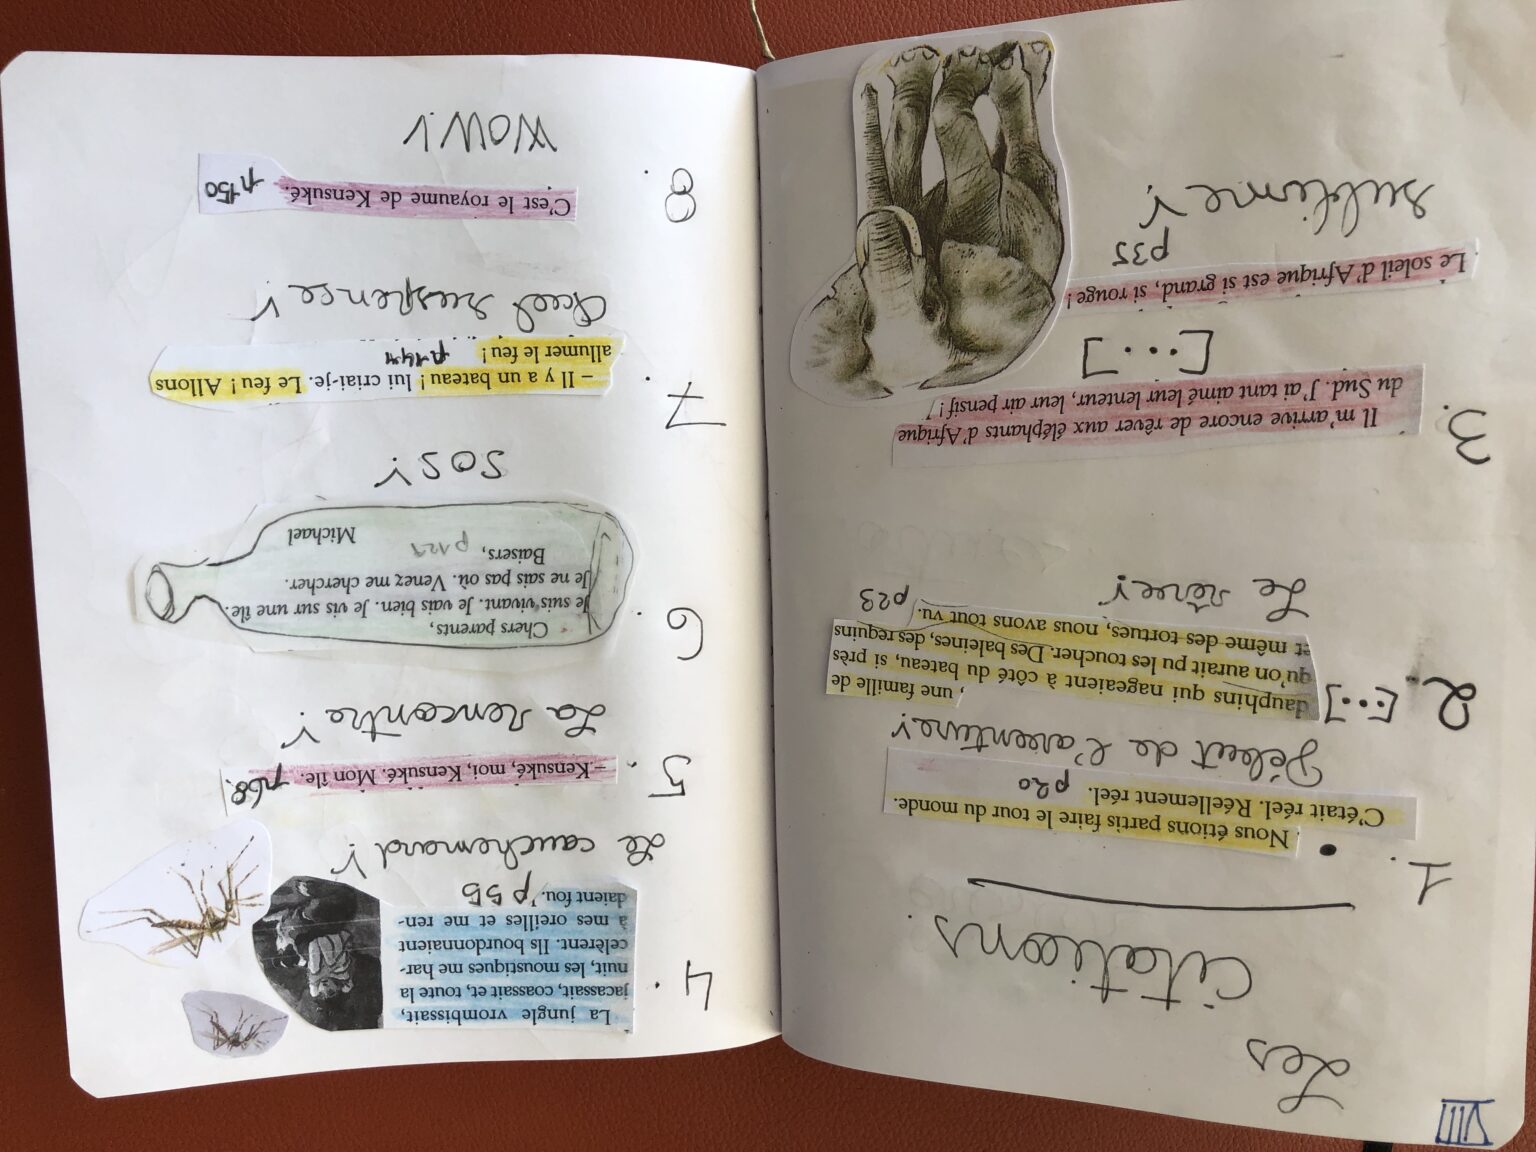 VIII
Les
citations
1. • Nous étions partis faire le tour du monde.
C'était réel. Réellement réel.
p20
Début de l'aventure!
2. [...] , une famille de
dauphins qui nageaient à côté du bateau, si près
qu'on aurait pu les toucher. Des baleines, des requins
et même des tortues, nous avons tout vu.
p23
Le rêve!
3. Il m'arrive encore de rêver aux éléphants d'Afrique
du Sud. J'ai tant aimé leur lenteur, leur air pensif !
[...]
Le soleil d'Afrique est si grand, si rouge !
p35
sublime!
4. La jungle vrombissait,
jacassait, coassait et, toute la
nuit, les moustiques me har-
celèrent. Ils bourdonnaient
à mes oreilles et me ren-
daient fou. p55
Le cauchemard!
5. – Kensuké, moi, Kensuké. Mon île. p68.
La rencontre!
6. Chers parents,
Je suis vivant. Je vais bien. Je vis sur une île.
Je ne sais pas où. Venez me chercher.
Baisers, p121
Michael
SOS!
7. – Il y a un bateau ! lui criai-je. Le feu ! Allons
allumer le feu ! p144
Quel suspence!
8. C'est le royaume de Kensuké. p150
WOW!